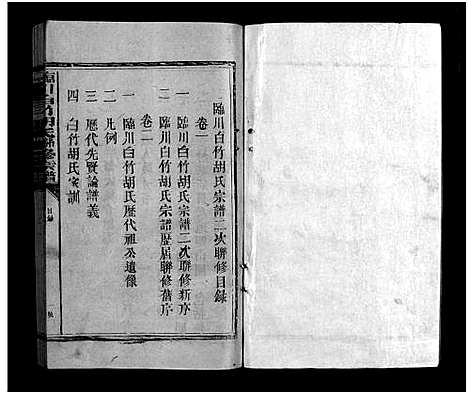 臨川白竹胡氏宗譜二次聯修目錄
卷一
一 臨川白竹胡氏宗譜二次聯修新序
二 臨川白竹胡氏宗譜歷屆聯修舊序
卷二
一 臨川白竹胡氏歷代祖公遺像
二 凡例
三 歷代先賢論譜義
四 白竹胡氏家訓
目錄